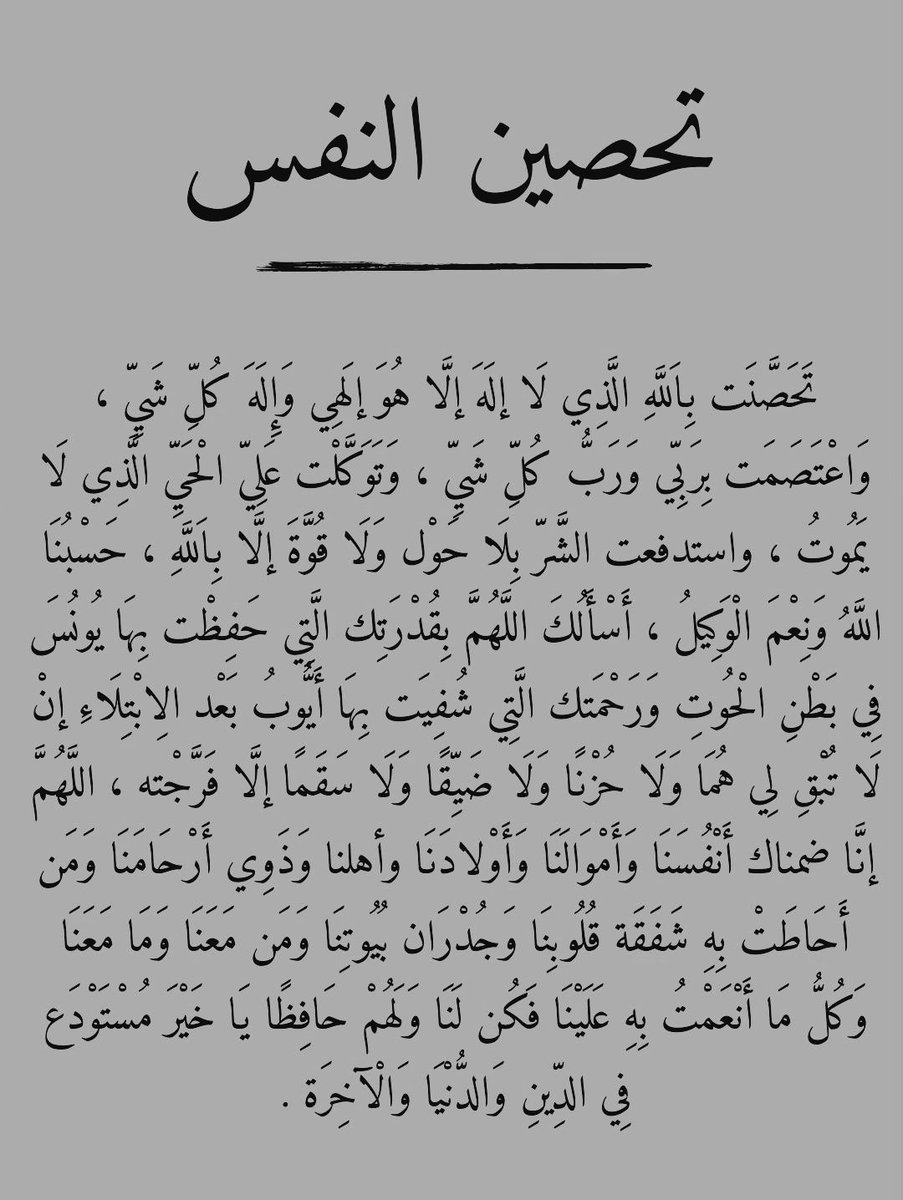 تحصين النفس
تَحَصَّنَت بِاَللَّهِ الَّذِي لَا إلَهَ إلَّا هُوَ إلَهِي وَإِلَهَ كُلِّ شَيِّ ،
وَاعْتَصَمَت بِرَبِّي وَرَبُّ كُلِّ شَيِّ ، وَتَوَكَّلْت عَلِيّ الْحَيِّ الَّذِي لَا
يَمُوتُ ، واستدفعت الشَّرّ بِلَا حَوْل وَلَا قُوَّةَ إلَّا بِاَللَّهِ ، حَسبُنَا
اللَّهُ وَنِعْمَ الْوَكِيلُ ، أَسْأَلُكَ اللَّهُمَّ بِقُدْرَتِك الَّتِي حَفِظْت بِهَا يُونُسَ
فِي بَطْنِ الْحُوتِ وَرَحْمَتك الَّتِي شُفِيَت بِهَا أَيُّوبُ بَعْد الِابْتِلَاءِ إنْ
لَا تُبْقِ لِي هُمَا وَلَا حُزْنًا وَلَا ضَيِّقًا وَلَا سَقَمًا إلَّا فَرَّجْته ، اللَّهُمَّ
إنَّا ضمناك أَنْفُسَنَا وَأَمْوَالَنَا وَأَوْلادَنَا وأهلنا وَذَوِي أَرْحَامَنَا وَمَن
أَحَاطَتْ بِهِ شَفَقَة قُلُوبِنَا وَجُدْرَان بُيُوتِنَا وَمَن مَعَنَا وَمَا مَعَنَا
وَكُلُّ مَا أَنْعَمْتُ بِهِ عَلَيْنَا فَكُن لَنَا وَلَهُمْ حَافِظًا يَا خَيْرَ مُسْتَوْدَع
فِي الدِّينِ وَالدُّنْيَا وَالْآخِرَة .